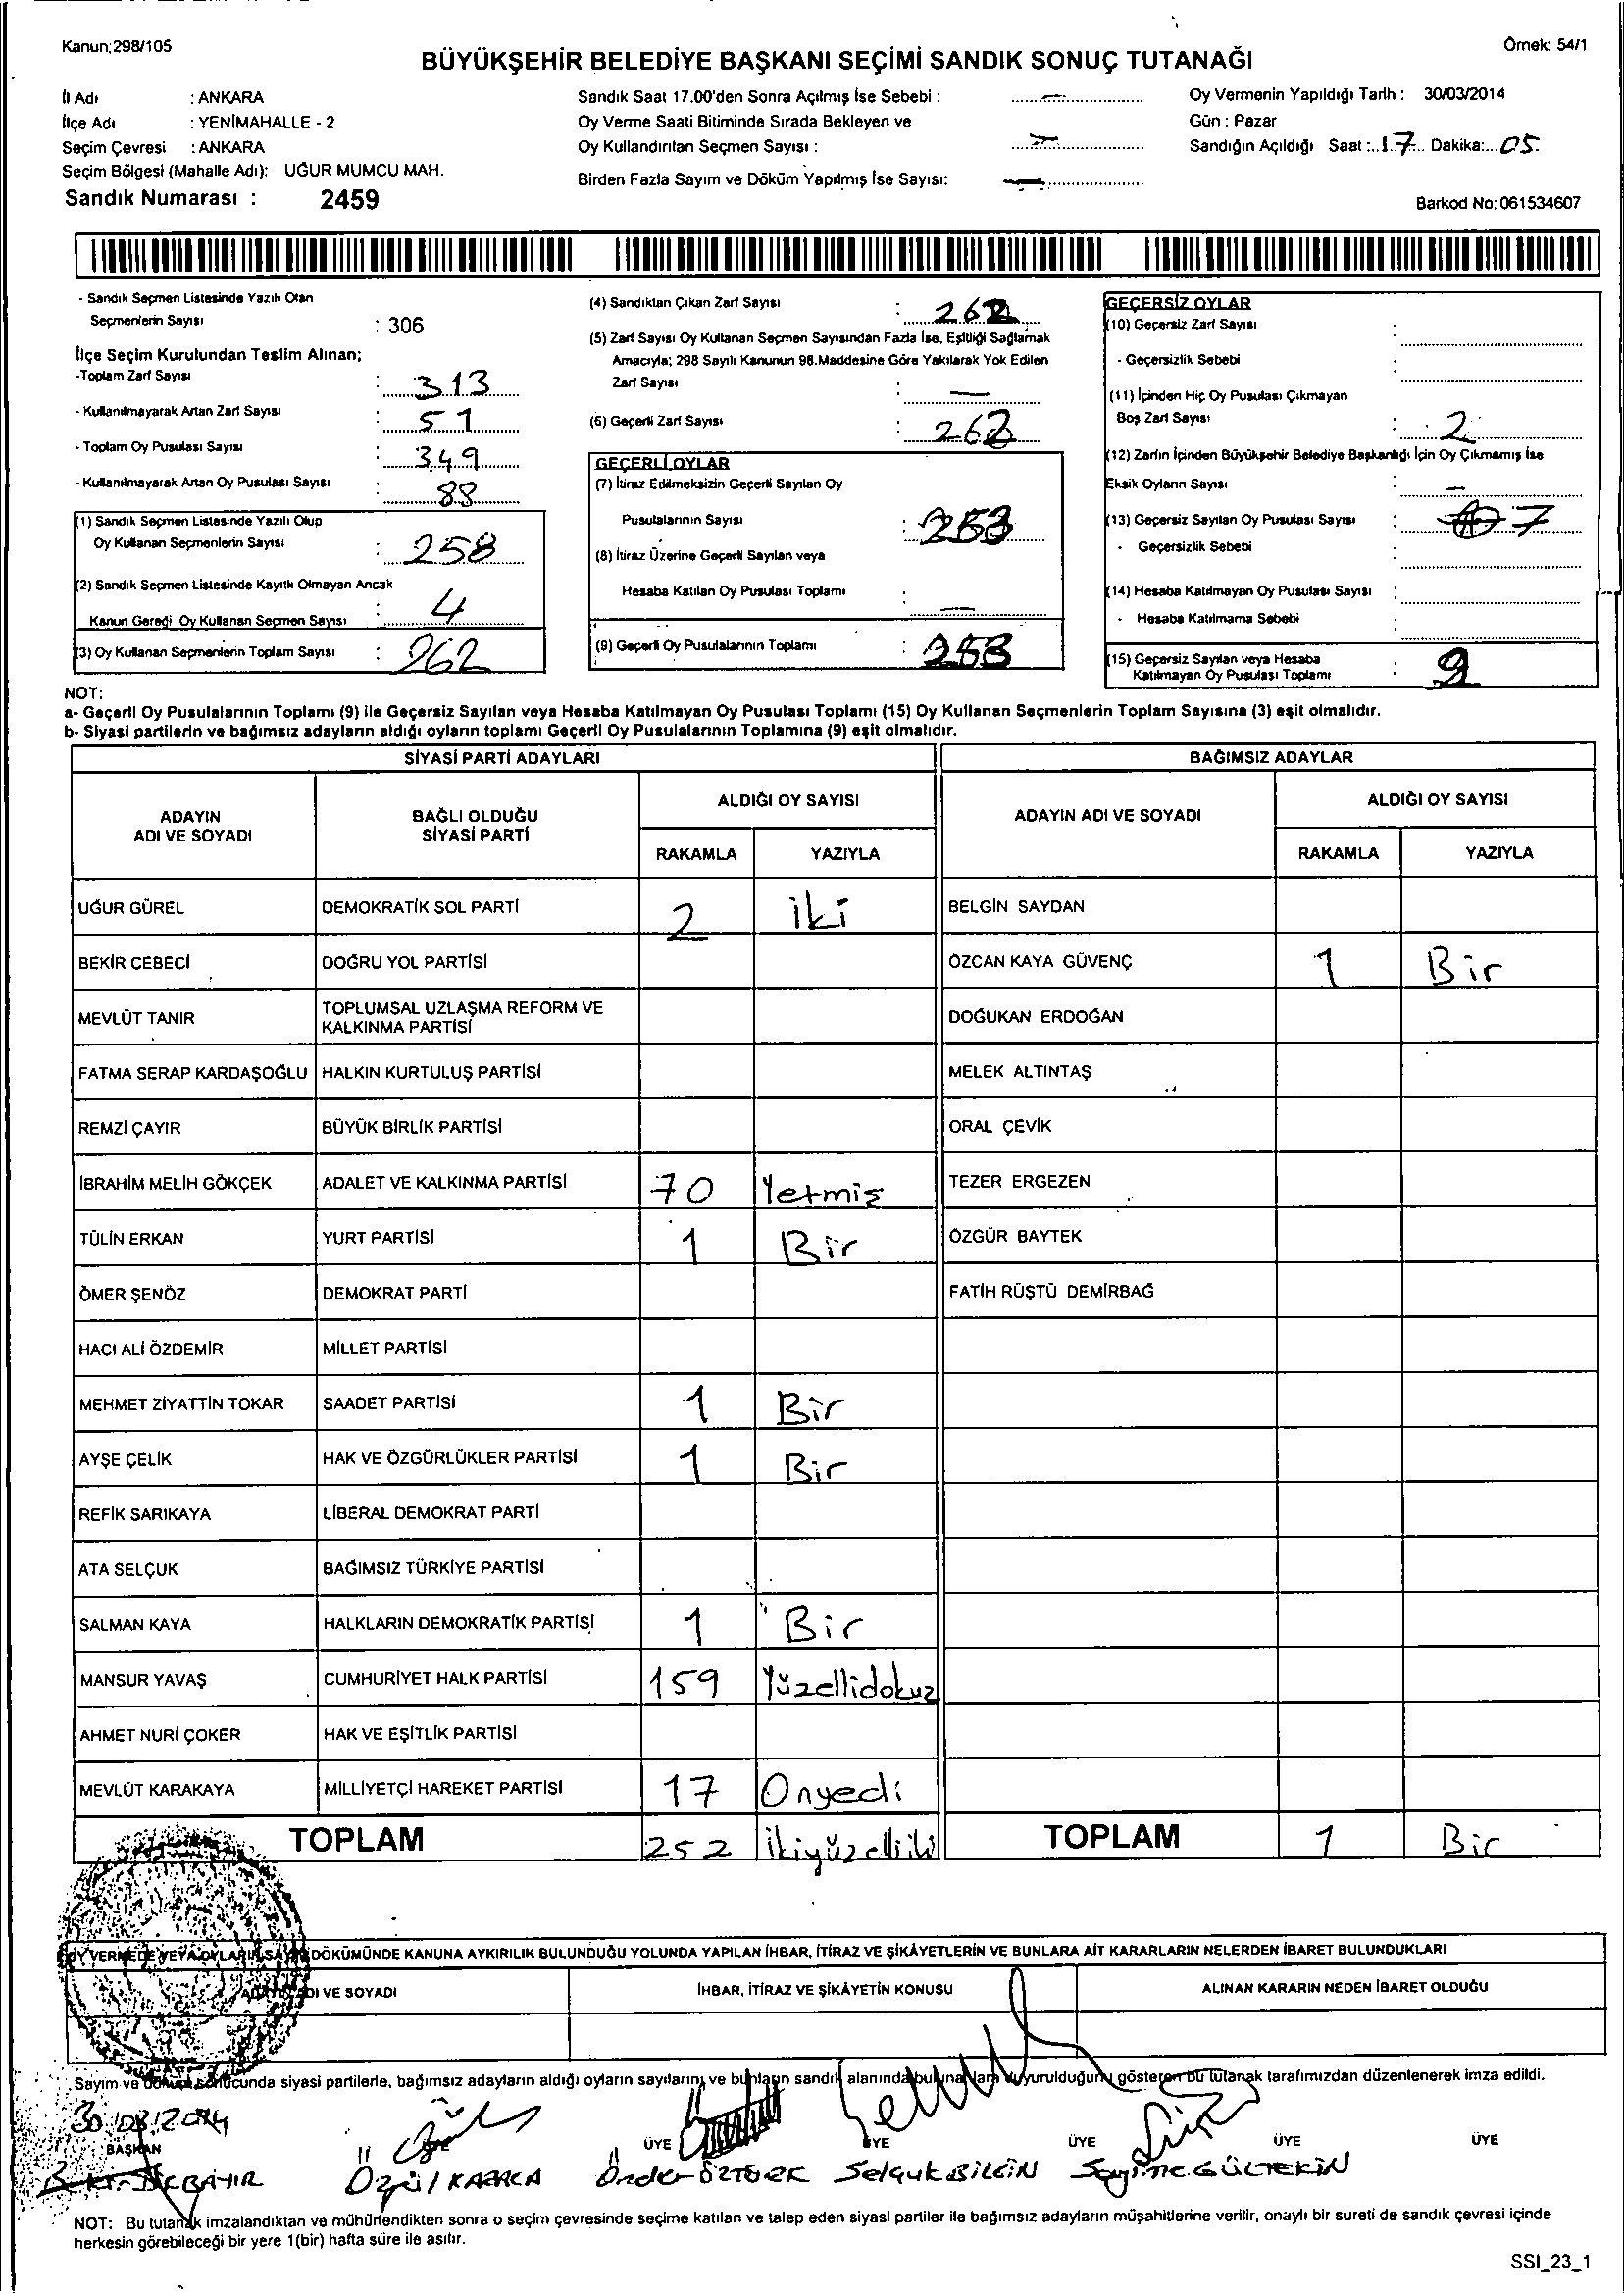 Kanun;298/105
Örnek: 54/1
BÜYÜKŞEHİR BELEDİYE BAŞKANI SEÇİMİ SANDIK SONUÇ TUTANAĞI
İl Adı : ANKARA
İlçe Adı : YENİMAHALLE - 2
Seçim Çevresi : ANKARA
Seçim Bölgesi (Mahalle Adı): UĞUR MUMCU MAH.
Sandık Numarası : 2459
Sandık Saat 17.00'den Sonra Açılmış İse Sebebi : —
Oy Verme Saati Bitiminde Sırada Bekleyen ve
Oy Kullandırılan Seçmen Sayısı : —
Birden Fazla Sayım ve Döküm Yapılmış İse Sayısı: —
Oy Vermenin Yapıldığı Tarih : 30/03/2014
Gün : Pazar
Sandığın Açıldığı Saat : 17 Dakika: 05
Barkod No: 061534607
- Sandık Seçmen Listesinde Yazılı Olan
Seçmenlerin Sayısı : 306
İlçe Seçim Kurulundan Teslim Alınan;
-Toplam Zarf Sayısı : 313
- Kullanılmayarak Artan Zarf Sayısı : 51
- Toplam Oy Pusulası Sayısı : 349
- Kullanılmayarak Artan Oy Pusulası Sayısı : 88
(1) Sandık Seçmen Listesinde Yazılı Olup
Oy Kullanan Seçmenlerin Sayısı : 258
(2) Sandık Seçmen Listesinde Kayıtlı Olmayan Ancak
Kanun Gereği Oy Kullanan Seçmen Sayısı : 4
(3) Oy Kullanan Seçmenlerin Toplam Sayısı : 262
(4) Sandıktan Çıkan Zarf Sayısı : 262
(5) Zarf Sayısı Oy Kullanan Seçmen Sayısından Fazla İse, Eşitliği Sağlamak
Amacıyla; 298 Sayılı Kanunun 98.Maddesine Göre Yakılarak Yok Edilen
Zarf Sayısı : —
(6) Geçerli Zarf Sayısı : 262
GEÇERLİ OYLAR
(7) İtiraz Edilmeksizin Geçerli Sayılan Oy
Pusulalarının Sayısı : 253
(8) İtiraz Üzerine Geçerli Sayılan veya
Hesaba Katılan Oy Pusulası Toplamı : —
(9) Geçerli Oy Pusulalarının Toplamı : 253
GEÇERSİZ OYLAR
(10) Geçersiz Zarf Sayısı :
- Geçersizlik Sebebi :
(11) İçinden Hiç Oy Pusulası Çıkmayan
Boş Zarf Sayısı : 2
(12) Zarfın İçinden Büyükşehir Belediye Başkanlığı İçin Oy Çıkmamış İse
Eksik Oyların Sayısı : —
(13) Geçersiz Sayılan Oy Pusulası Sayısı : 7
- Geçersizlik Sebebi :
(14) Hesaba Katılmayan Oy Pusulası Sayısı :
- Hesaba Katılmama Sebebi :
(15) Geçersiz Sayılan veya Hesaba
Katılmayan Oy Pusulası Toplamı : 9
NOT:
a- Geçerli Oy Pusulalarının Toplamı (9) ile Geçersiz Sayılan veya Hesaba Katılmayan Oy Pusulası Toplamı (15) Oy Kullanan Seçmenlerin Toplam Sayısına (3) eşit olmalıdır.
b- Siyasi partilerin ve bağımsız adayların aldığı oyların toplamı Geçerli Oy Pusulalarının Toplamına (9) eşit olmalıdır.
SİYASİ PARTİ ADAYLARI BAĞIMSIZ ADAYLAR
ADAYIN ADI VE SOYADI BAĞLI OLDUĞU SİYASİ PARTİ ALDIĞI OY SAYISI ADAYIN ADI VE SOYADI ALDIĞI OY SAYISI
RAKAMLA YAZIYLA RAKAMLA YAZIYLA
UĞUR GÜREL DEMOKRATİK SOL PARTİ 2 iki BELGİN SAYDAN
BEKİR CEBECİ DOĞRU YOL PARTİSİ ÖZCAN KAYA GÜVENÇ 1 Bir
MEVLÜT TANIR TOPLUMSAL UZLAŞMA REFORM VE KALKINMA PARTİSİ DOĞUKAN ERDOĞAN
FATMA SERAP KARDAŞOĞLU HALKIN KURTULUŞ PARTİSİ MELEK ALTINTAŞ
REMZİ ÇAYIR BÜYÜK BİRLİK PARTİSİ ORAL ÇEVİK
İBRAHİM MELİH GÖKÇEK ADALET VE KALKINMA PARTİSİ 70 Yetmiş TEZER ERGEZEN
TÜLİN ERKAN YURT PARTİSİ 1 Bir ÖZGÜR BAYTEK
ÖMER ŞENÖZ DEMOKRAT PARTİ FATİH RÜŞTÜ DEMİRBAĞ
HACI ALİ ÖZDEMİR MİLLET PARTİSİ
MEHMET ZİYATTİN TOKAR SAADET PARTİSİ 1 Bir
AYŞE ÇELİK HAK VE ÖZGÜRLÜKLER PARTİSİ 1 Bir
REFİK SARIKAYA LİBERAL DEMOKRAT PARTİ
ATA SELÇUK BAĞIMSIZ TÜRKİYE PARTİSİ
SALMAN KAYA HALKLARIN DEMOKRATİK PARTİSİ 1 Bir
MANSUR YAVAŞ CUMHURİYET HALK PARTİSİ 159 Yüzellidokuz
AHMET NURİ ÇOKER HAK VE EŞİTLİK PARTİSİ
MEVLÜT KARAKAYA MİLLİYETÇİ HAREKET PARTİSİ 17 Onyedi
TOPLAM 252 ikiyüzelliiki TOPLAM 1 Bir
OY VERMEDE VEYA OYLARIN SAYIM DÖKÜMÜNDE KANUNA AYKIRILIK BULUNDUĞU YOLUNDA YAPILAN İHBAR, İTİRAZ VE ŞİKÂYETLERİN VE BUNLARA AİT KARARLARIN NELERDEN İBARET BULUNDUKLARI
ADI VE SOYADI İHBAR, İTİRAZ VE ŞİKÂYETİN KONUSU ALINAN KARARIN NEDEN İBARET OLDUĞU
Sayım ve döküm sonucunda siyasi partilerle, bağımsız adayların aldığı oyların sayılarını ve bunların sandık alanında bulunanlara duyurulduğunu gösteren bu tutanak tarafımızdan düzenlenerek imza edildi.
30/03/2014
BAŞKAN ÜYE ÜYE ÜYE ÜYE ÜYE
Özgül KARACA Önder ÖZTÜRK Selçuk BİLGİN GÜLTEKİN
NOT: Bu tutanak imzalandıktan ve mühürlendikten sonra o seçim çevresinde seçime katılan ve talep eden siyasi partiler ile bağımsız adayların müşahitlerine verilir, onaylı bir sureti de sandık çevresi içinde
herkesin görebileceği bir yere 1(bir) hafta süre ile asılır.
SSI_23_1